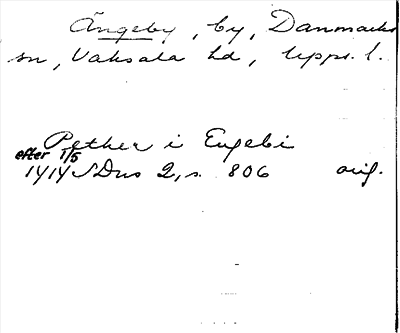 Ängeby, by, Danmarks
sn, Vaksala hd, Upps. l.
Pether i Engebi
efter 1/5
1414 SDns 2, s. 806 orig.